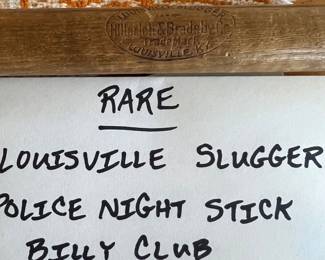 Hillerich & Bradsby Co
Trade Mark
LOUISVILLE, KY.
RARE
LOUISVILLE SLUGGER
POLICE NIGHT STICK
BILLY CLUB